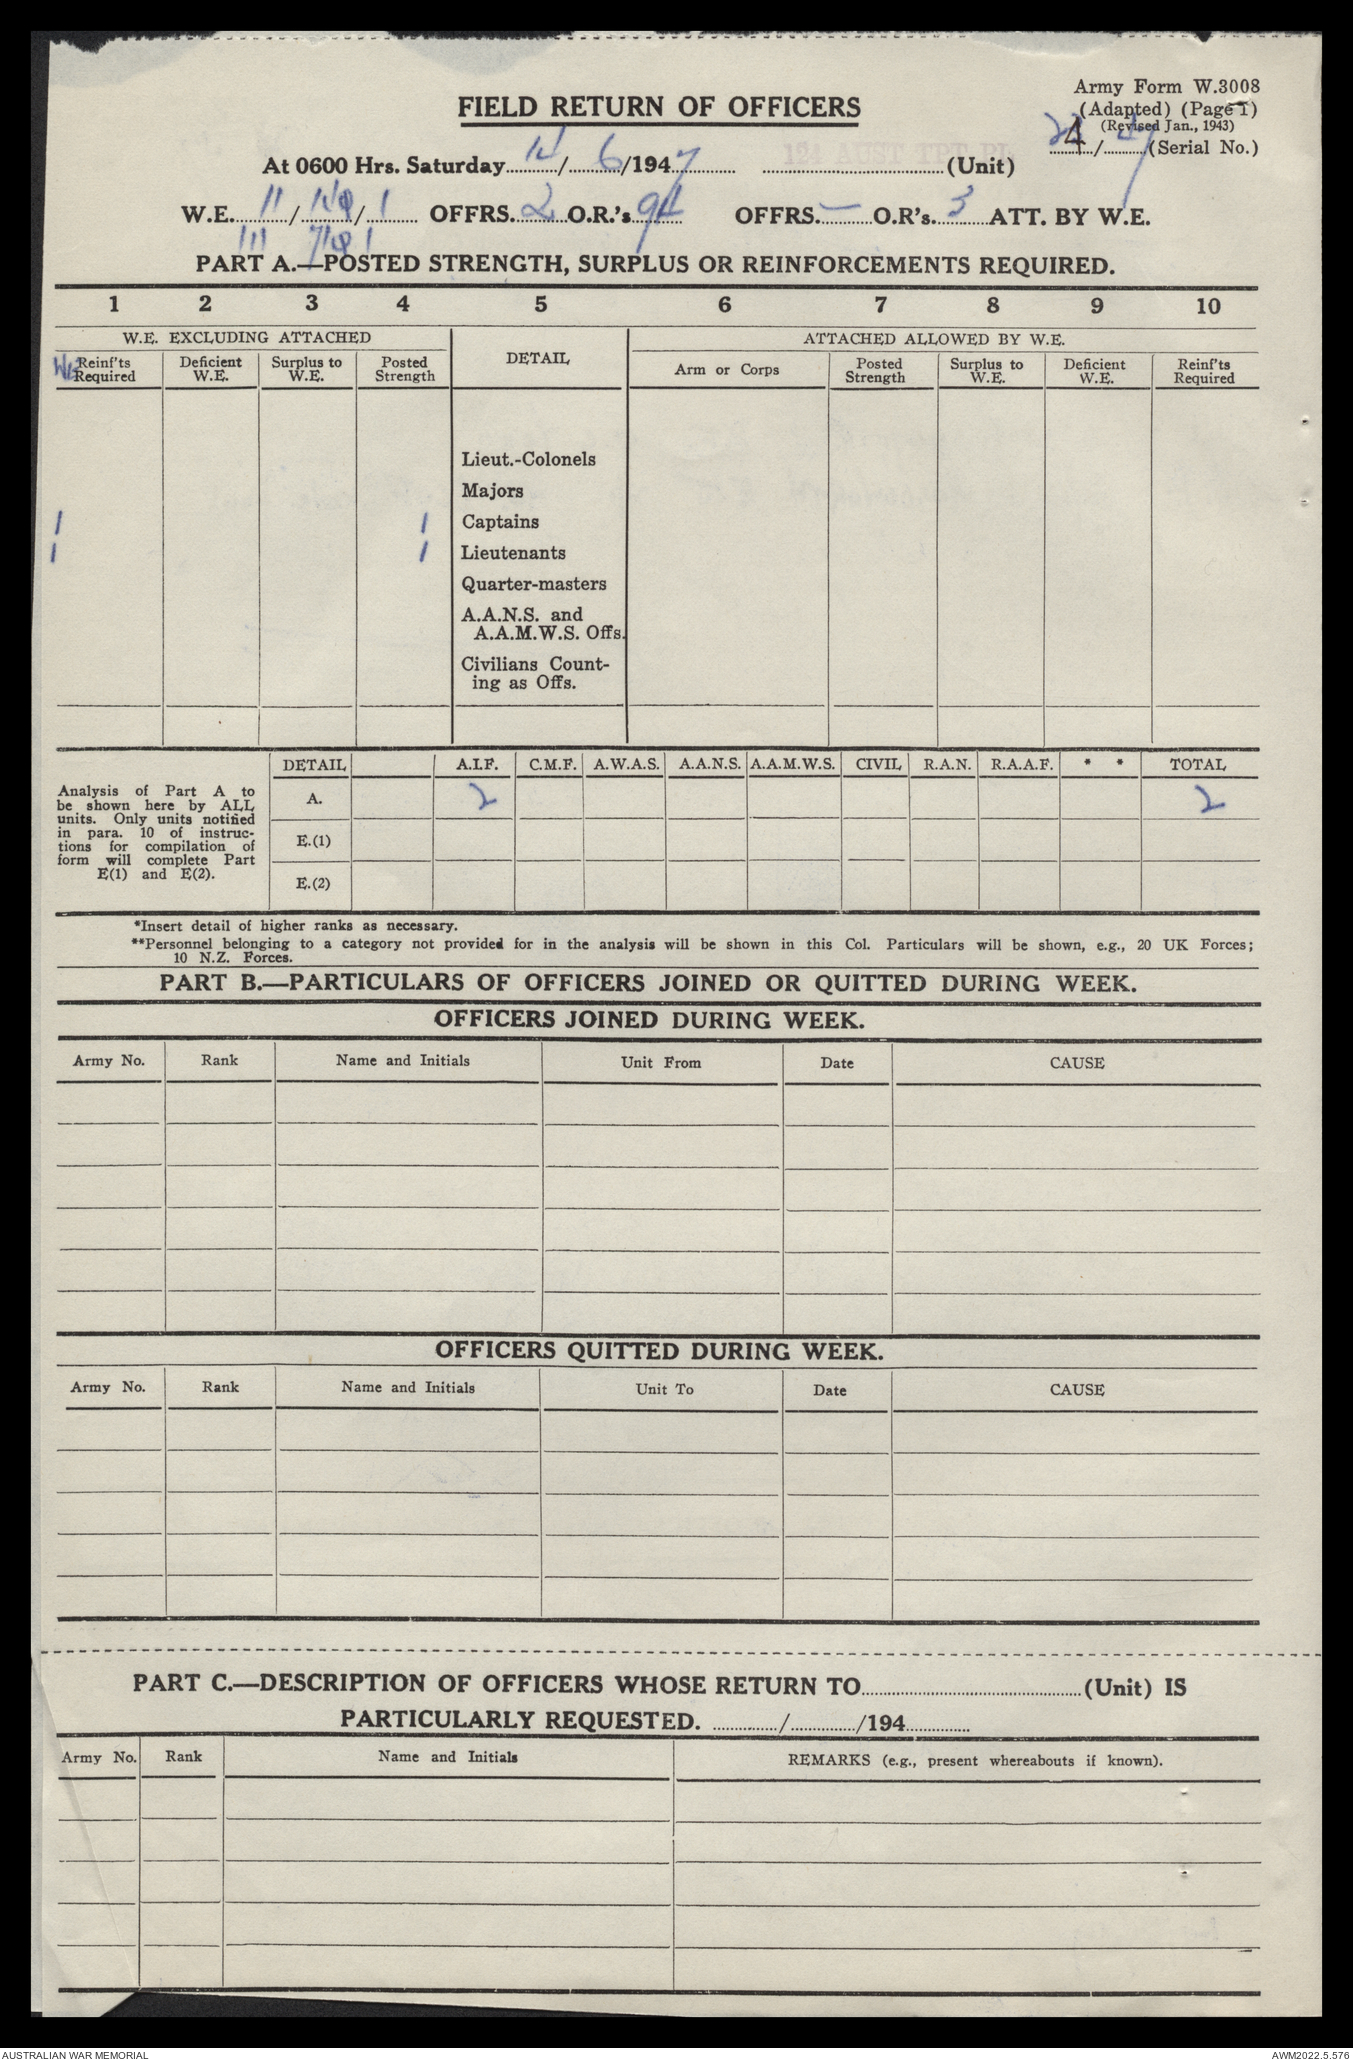 Army Form W.3008
FIELD RETURN OF OFFICERS
(Adapted) (Page 1)
(Revised Jan., 1943)
4/47 (Serial No.)
At 0600 Hrs. Saturday 14/6/1947 124 AUST TPT PL (Unit)
W.E. 11/ /1 OFFRS. 2 O.R.'s 94 OFFRS. — O.R's. 3 ATT. BY W.E.
111 1
PART A.—POSTED STRENGTH, SURPLUS OR REINFORCEMENTS REQUIRED.
1 2 3 4 5 6 7 8 9 10
W.E. EXCLUDING ATTACHED DETAIL ATTACHED ALLOWED BY W.E.
W.E. Reinf'ts Required Deficient W.E. Surplus to W.E. Posted Strength Arm or Corps Posted Strength Surplus to W.E. Deficient W.E. Reinf'ts Required
Lieut.-Colonels
Majors
1 1 Captains
1 1 Lieutenants
Quarter-masters
A.A.N.S. and
A.A.M.W.S. Offs.
Civilians Count-
ing as Offs.
DETAIL A.I.F. C.M.F. A.W.A.S. A.A.N.S. A.A.M.W.S. CIVIL R.A.N. R.A.A.F. * * TOTAL
Analysis of Part A to
be shown here by ALL
units. Only units notified
in para. 10 of instruc-
tions for compilation of
form will complete Part
E(1) and E(2).
A. 2 2
E.(1)
E.(2)
*Insert detail of higher ranks as necessary.
**Personnel belonging to a category not provided for in the analysis will be shown in this Col. Particulars will be shown, e.g., 20 UK Forces;
10 N.Z. Forces.
PART B.—PARTICULARS OF OFFICERS JOINED OR QUITTED DURING WEEK.
OFFICERS JOINED DURING WEEK.
Army No. Rank Name and Initials Unit From Date CAUSE
OFFICERS QUITTED DURING WEEK.
Army No. Rank Name and Initials Unit To Date CAUSE
PART C.—DESCRIPTION OF OFFICERS WHOSE RETURN TO (Unit) IS
PARTICULARLY REQUESTED. / /194
Army No. Rank Name and Initials REMARKS (e.g., present whereabouts if known).
AUSTRALIAN WAR MEMORIAL AWM2022.5.576